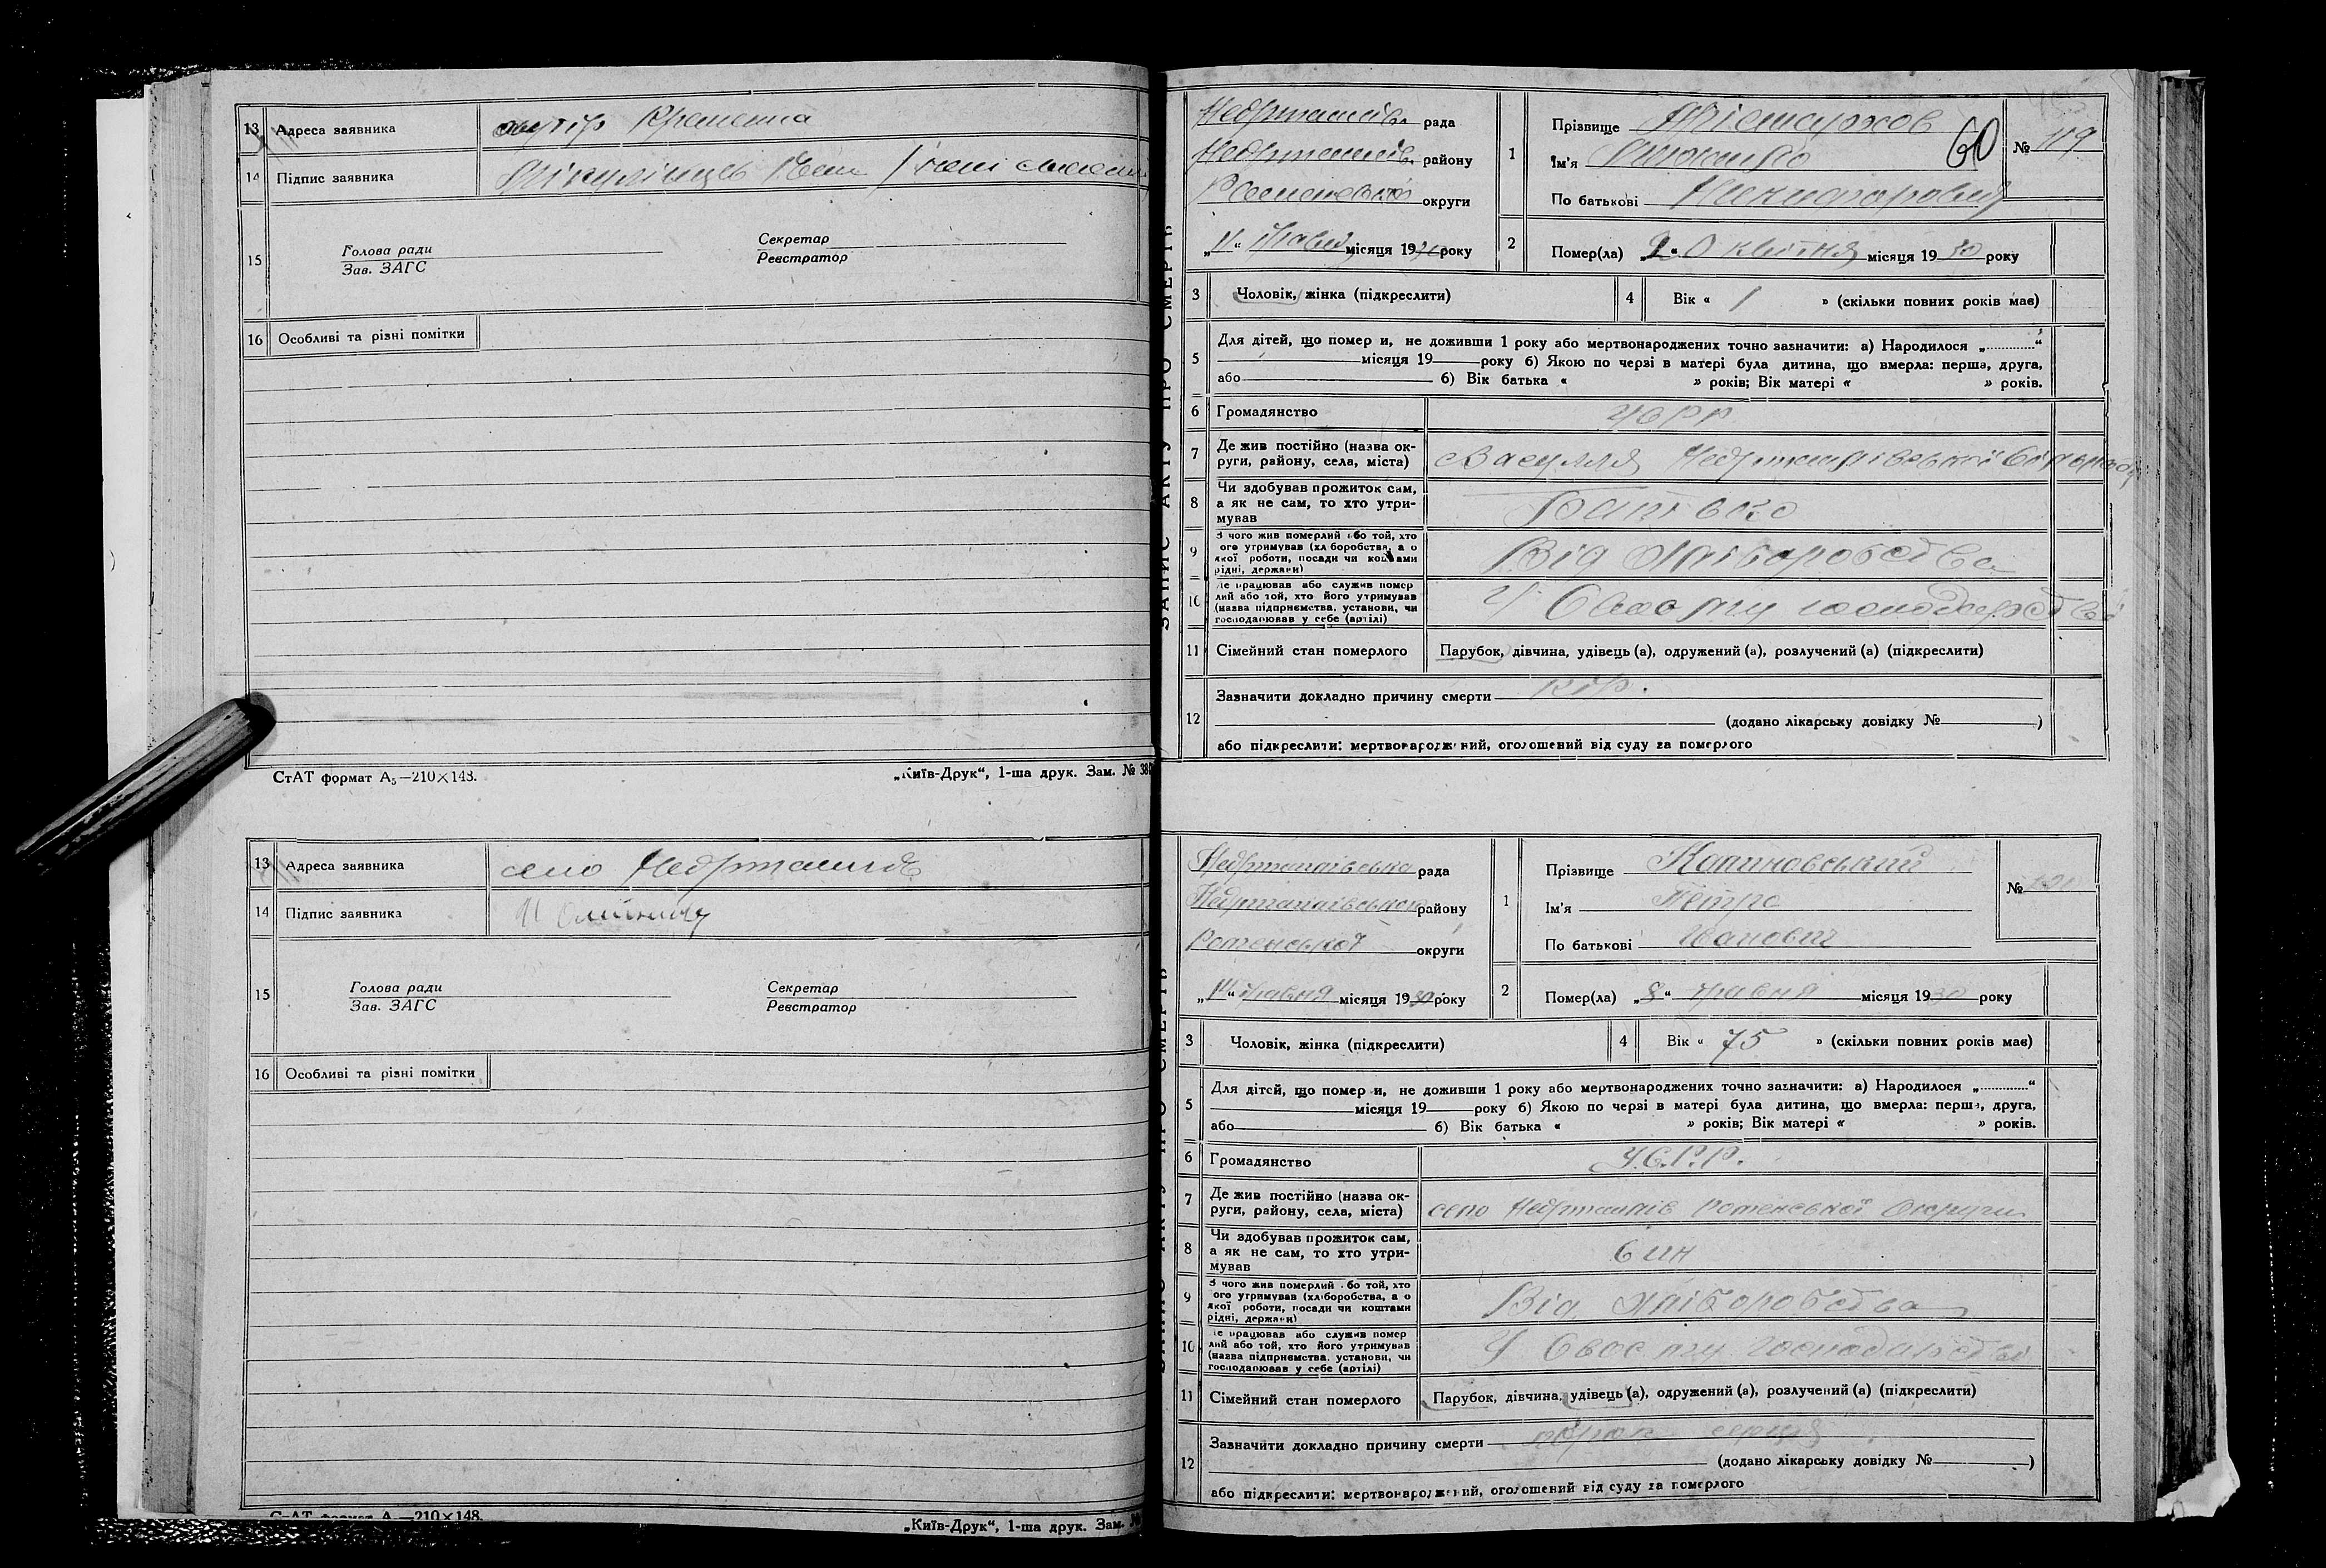 13 Адреса заявника хутір
14 Підпис заявника
15 Голова ради
Зав. ЗАГС
Секретар
Реєстратор
16 Особливі та різні помітки
СтАТ формат А5—210×148.
„Київ-Друк“, 1-ша друк. Зам. № 38
13 Адреса заявника село Недригайлів
14 Підпис заявника
15 Голова ради
Зав. ЗАГС
Секретар
Реєстратор
16 Особливі та різні помітки
СтАТ формат А —210×148.
„Київ-Друк“, 1-ша друк. Зам.
ЗАПИС АКТУ ПРО СМЕРТЬ
Недригайлів. рада
Недригайлів. району
округи
„11“ травня місяця 1930 року
1 Прізвище
Ім'я
По батькові Никифорович
60
№ 119
2 Помер(ла) квітня місяця 1930 року
3 Чоловік, жінка (підкреслити)
4 Вік « 1 » (скільки повних років має)
5 Для дітей, що помер и, не доживши 1 року або мертвонароджених точно зазначити: а) Народилося „............“
місяця 19 року б) Якою по черзі в матері була дитина, що вмерла: перша, друга,
або б) Вік батька « » років; Вік матері « » років.
6 Громадянство УСРР
7 Де жив постійно (назва округи, району, села, міста) Засулля Недригайлівської
8 Чи здобував прожиток сам,
а як не сам, то хто утри-
мував Батько
9 З чого жив померлий або той, хто
ого утримував (хліборобства, а о
якої роботи, посади чи коштами
рідні, держави) Від хліборобства
10 Де працював або служив помер
лий або той, хто його утримував
(назва підприємства, установи, чи
господарював у себе (артілі) У своєму господарстві
11 Сімейний стан померлого Парубок, дівчина, удівець (а), одружений (а), розлучений (а) (підкреслити)
12 Зазначити докладно причину смерти кір.
(додано лікарську довідку № )
або підкреслити: мертвонароджений, оголошений від суду за померлого
Недригайлівська рада
Недригайлівського району
Роменської округи
„11“ травня місяця 1930 року
1 Прізвище
Ім'я Петро
По батькові Іванович
№
2 Помер(ла) „8“ травня місяця 1930 року
3 Чоловік, жінка (підкреслити)
4 Вік « 75 » (скільки повних років має)
5 Для дітей, що помер и, не доживши 1 року або мертвонароджених точно зазначити: а) Народилося „............“
місяця 19 року б) Якою по черзі в матері була дитина, що вмерла: перша, друга,
або б) Вік батька « » років; Вік матері « » років.
6 Громадянство У.С.Р.Р.
7 Де жив постійно (назва округи, району, села, міста) село Недригайлів Роменської Округи
8 Чи здобував прожиток сам,
а як не сам, то хто утри-
мував син
9 З чого жив померлий або той, хто
ого утримував (хліборобства, а о
якої роботи, посади чи коштами
рідні, держави) Від хліборобства
10 Де працював або служив помер
лий або той, хто його утримував
(назва підприємства, установи, чи
господарював у себе (артілі) У своєму господарстві
11 Сімейний стан померлого Парубок, дівчина, удівець (а), одружений (а), розлучений (а) (підкреслити)
12 Зазначити докладно причину смерти серця
(додано лікарську довідку № )
або підкреслити: мертвонароджений, оголошений від суду за померлого